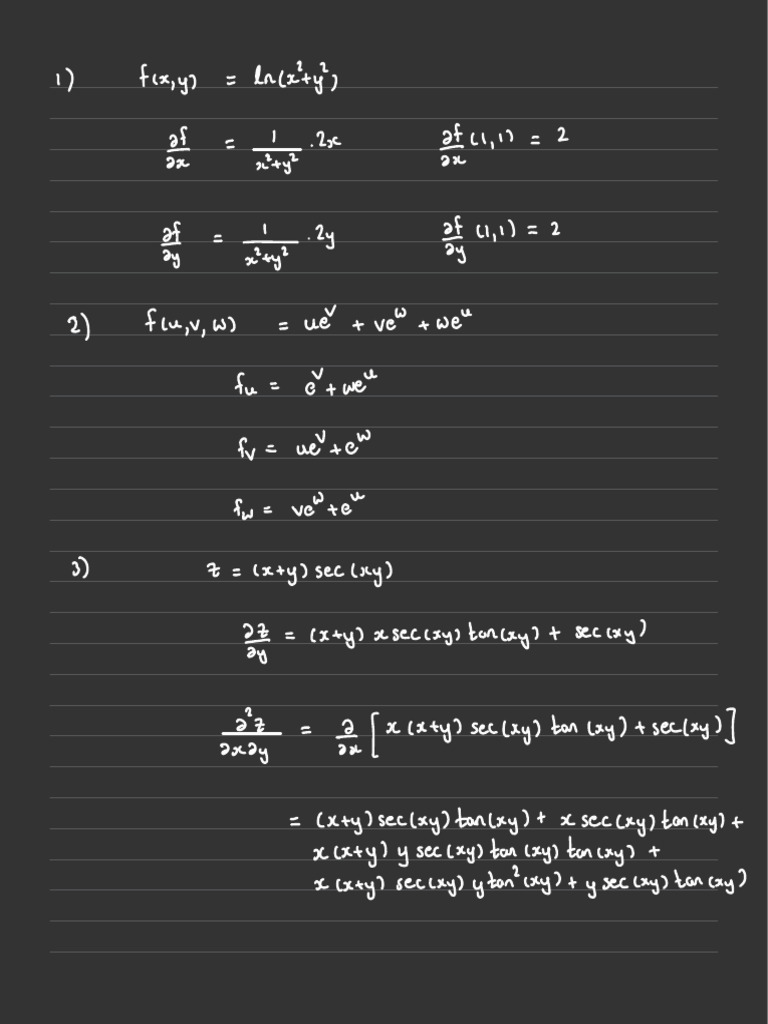 1) f(x,y) = ln(x²+y²)
∂f/∂x = 1/(x²+y²) · 2x ∂f/∂x (1,1) = 2
∂f/∂y = 1/(x²+y²) · 2y ∂f/∂y (1,1) = 2
2) f(u,v,w) = ue^v + ve^w + we^u
f_u = e^v + we^u
f_v = ue^v + e^w
f_w = ve^w + e^u
3) z = (x+y) sec(xy)
∂z/∂y = (x+y) x sec(xy) tan(xy) + sec(xy)
∂²z/∂x∂y = ∂/∂x [x (x+y) sec(xy) tan (xy) + sec(xy)]
= (x+y) sec(xy) tan(xy) + x sec(xy) tan(xy) +
x (x+y) y sec(xy) tan (xy) tan(xy) +
x (x+y) sec(xy) y tan²(xy) + y sec(xy) tan(xy)